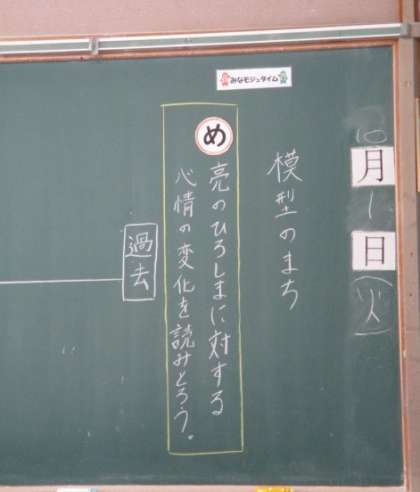 みなモジュタイム
10月1日(火)
模型のまち
め
亮のひろしまに対する
心情の変化を読みとろう。
過去